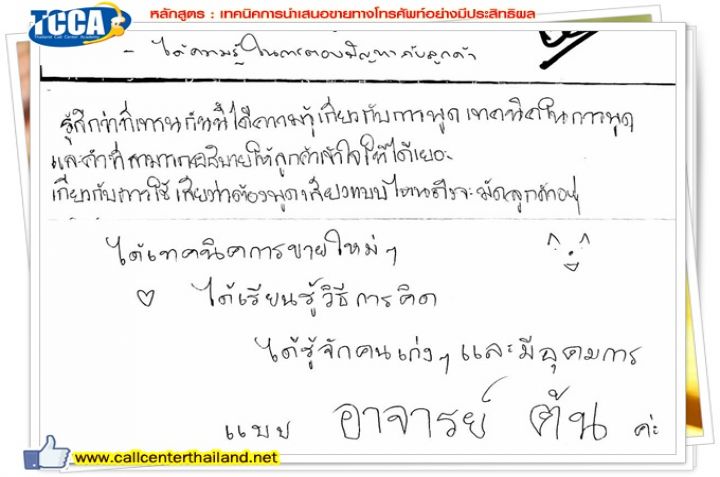 TCCA
Thailand Call Center Academy
หลักสูตร : เทคนิคการนำเสนอขายทางโทรศัพท์อย่างมีประสิทธิผล
- ได้ความรู้ในการตอบปัญหากับลูกค้า
รู้สึกว่าที่เทรนกันนี้ได้ความรู้เกี่ยวกับการพูด เทคนิคในการพูด
และคำที่สามารถอธิบายให้ลูกค้าเข้าใจให้ได้เยอะ
เกี่ยวกับการใช้เสียงว่าต้องพูดเสียงแบบไหนถึงจะมัดลูกค้าอยู่
ได้เทคนิคการขายใหม่ๆ
ได้เรียนรู้วิธีการคิด
ได้รู้จักคนเก่งๆ และมีอุดมการ
แบบ อาจารย์ ต้น ค่ะ
www.callcenterthailand.net